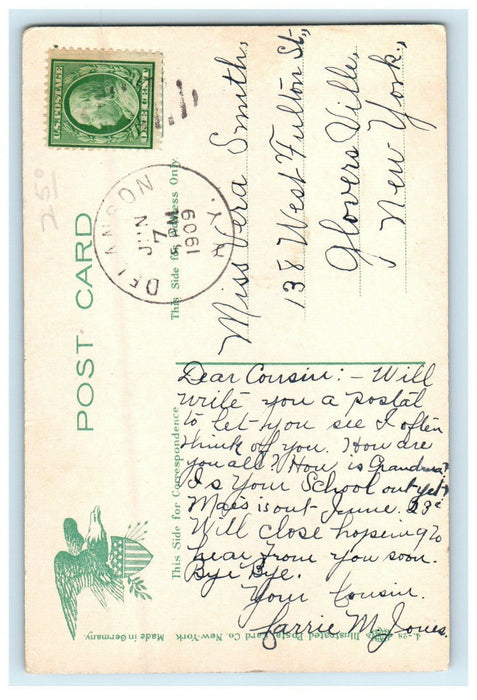 U.S. POSTAGE
ONE CENT
DELANSON
N.Y.
JUN
7
PM
1909
25¢
POST CARD
This Side for Address Only
Miss Vera Smith,
138 West Fulton St.,
Glovers Ville,
New York.
This Side for Correspondence
Dear Cousin: - Will
write you a postal
to let you see I often
think of you. How are
you all? How is Grandma?
Is Your School out yet?
is out June. 23
Will close hopeing to
hear from you soon.
Bye Bye.
Your Cousin.
Carrie M Jones.
Illustrated Postal Card Co. New-York. Made in Germany.